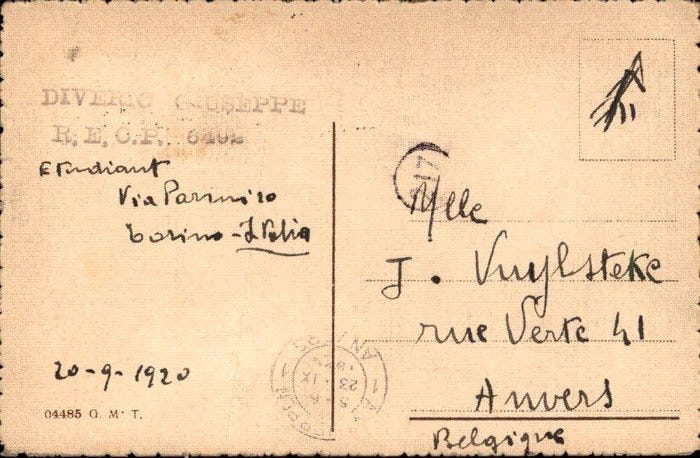 DIVERIO GIUSEPPE
R.E.C.P. 6492
Etudiant
Via Parini 10
Torino - Italia
20-9-1920
04485 G. M. T.
217
Mlle
J. Vuylsteke
rue Verte 41
Anvers
Belgique
ANT
23 IX